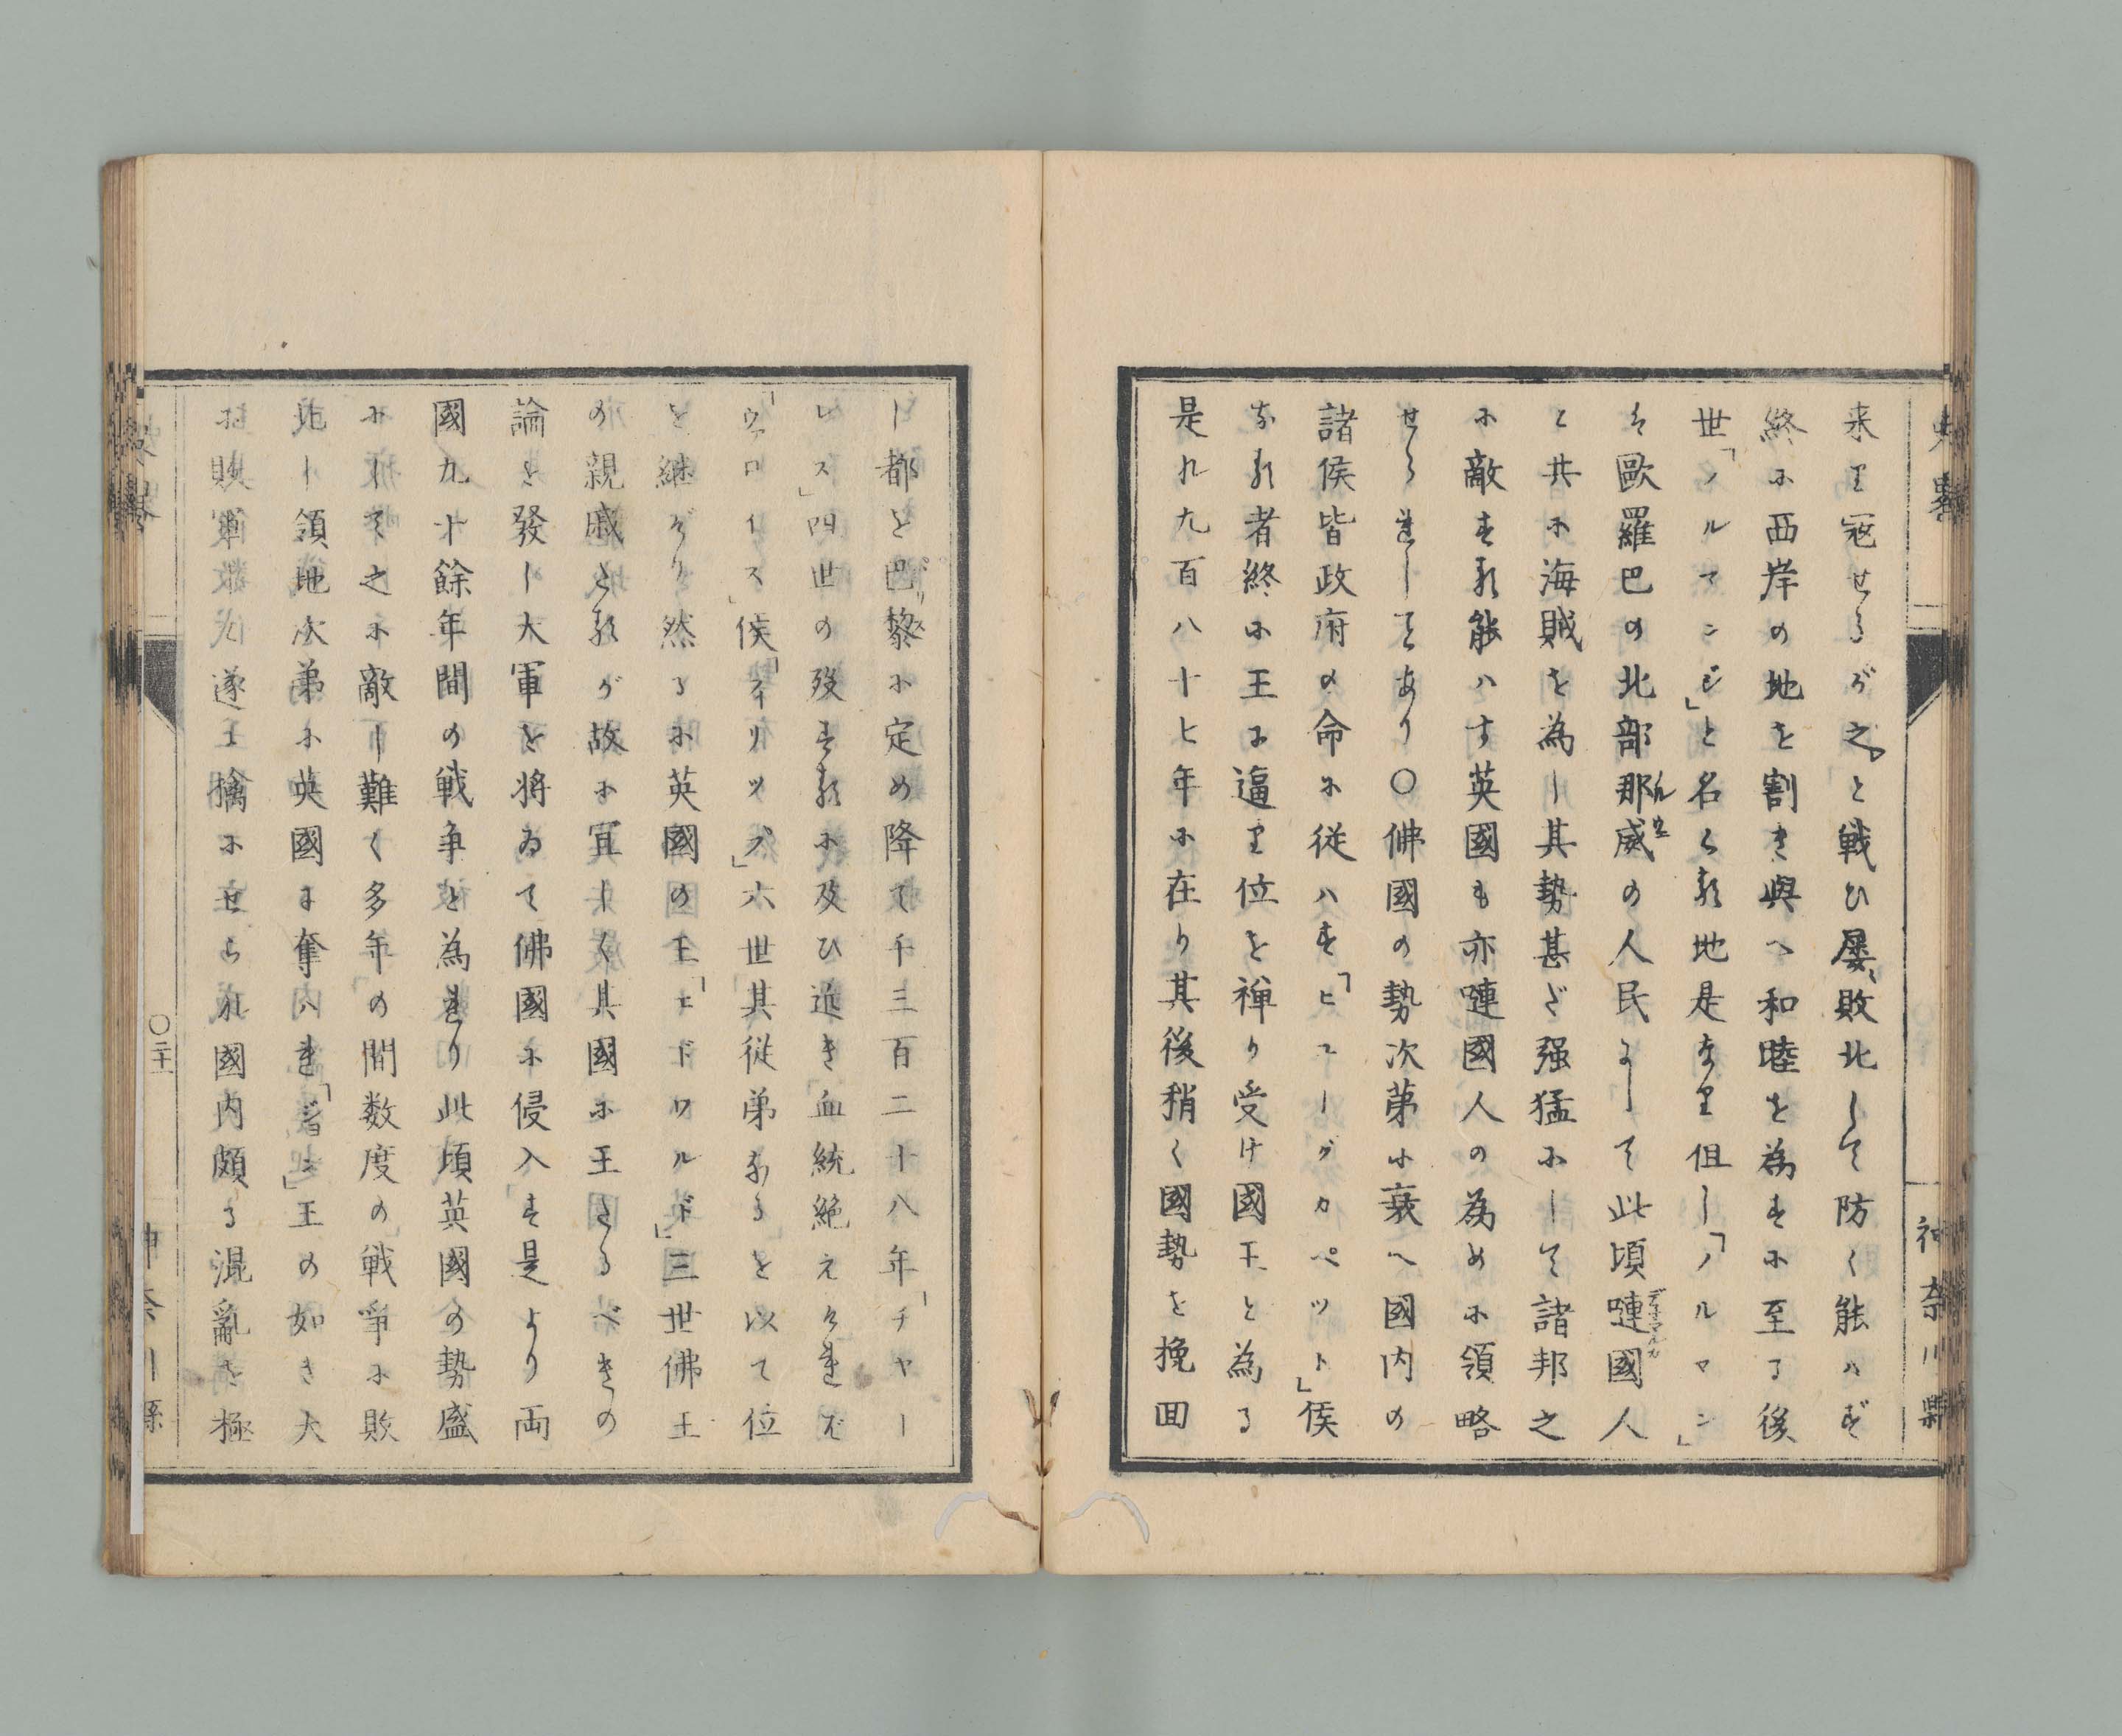 史畧
神奈川縣
来り冦せるが之と戦ひ屡〻敗北して防く能ハず
終に西岸の地を割き與へ和睦を為すに至る後
世「ノルマンヂ」と名くる地是なり但し「ノルマン」
は歐羅巴の北部那威の人民にして此頃嗹國人
と共に海賊を為し其勢甚ざ强猛にして諸邦之
に敵する能ハす英國も亦嗹國人の為めに領略
せられしことあり〇佛國の勢次第に衰へ國内の
諸侯皆政府の命に従ハす「ヒユーグカペット」侯
なる者終に王に逼り位を禅り受け國王と為る
是れ九百八十七年に在り其後稍く國勢を挽回
し都を巴黎に定め降て千三百二十八年「チヤー
レス」四世の歿するに及ひ近き血統絶えけれど
「ヴァロイス」侯「ヰリップ」六世其従弟なるを以て位
を継ぞり然るに英國の王「エドワルド」三世佛王
の親戚なるが故に宜しく其國に王たるべきの
論を發し大軍を将ゐて佛國に侵入す是より両
國九十餘年間の戦争を為せり此頃英國の勢盛
にして之に敵し難く多年の間数度の戦爭に敗
北し領地次第に英國に奪ハれ「ジョン」王の如き大
に敗軍
遂に擒にせられ國内頗る混亂を極
〇二十